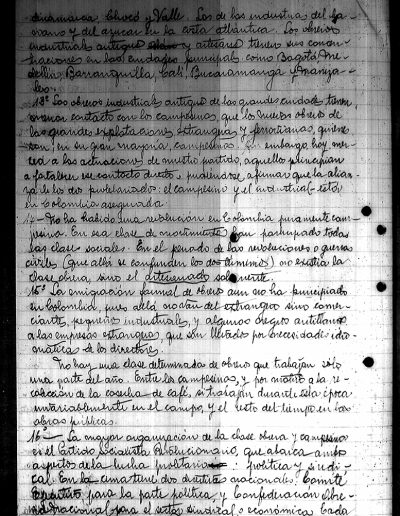 dinamarca, Chocó y Valle. Los de las industrias del ba-
nano y del azucar en la costa atlántica. Los obreros
industriales antiguos y artesanos tienen sus concen-
traciones en las ciudades principales como Bogotá, Me-
dellin, Barranquilla, Cali, Bucaramanga y Maniza-
les.
13º Los obreros industriales antiguos de las grandes ciudades tienen
menor contacto con los campesinos, que los nuevos obreros de
las grandes explotaciones extrangeras y ferroviarias, quienes
son, en su gran mayoria, campesinos. Sin embargo hoy, mer-
ced a las actuaciones de nuestro partido, aquellos principian
a fortalecer su contacto directo y pudiéndose afirmar que la alian-
za de los dos proletariados: el campesino y el industrial está
en Colombia asegurada.
14- No ha habido una revolución en Colombia puramente cam-
pesina. En esa clase de movimientos han participado todas
las clases sociales. En el periodo de las revoluciones o guerras
civiles (que allá se confunden los dos términos) no existia la
clase obrera, sino el artesanado solamente.
15º La emigración formal de obreros aun no ha principiado
en Colombia, pues de allá no salen extrangeros sino comer-
ciantes, pequeños industriales, y algunos negros antillanos
a las empresas extrangeras, que son llevados por necesidades idio-
máticas de los directores.
No hay una clase determinada de obreros que trabajen sólo
una parte del año. Entre los campesinos, y por motivo a la re-
colección de la cosecha de café, si trabajan durante esta época
invariablemente en el campo, y el resto del tiempo en las
obras públicas.
16º- La mayor organización de la clase obrera y campesina
es el Partido Socialista Revolucionario, que abarca ambos
aspectos de la lucha proletaria: política y sindi-
cal. En la cima tiene dos directivas nacionales: Comité
Ejecutivo para la parte política, y Confederación Obre-
ra Nacional para el sector sindical o económico. Cada